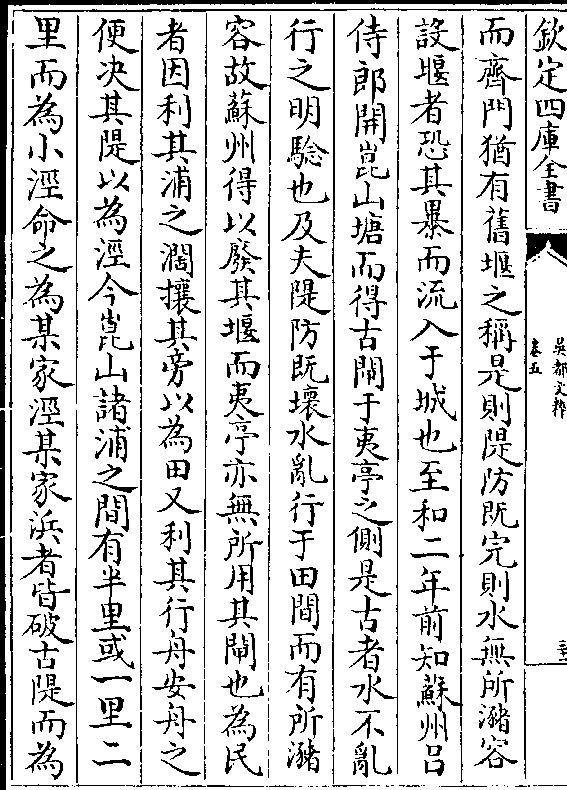 欽定四庫全書
吳都文粹
卷五
而齊門猶有舊堰之稱是則隄防既完則水無所瀦容
設堰者恐其暴而流入于城也至和二年前知蘇州吕
侍郎開崑山塘而得古閘于夷亭之側是古者水不亂
行之明驗也及夫隄防既壞水亂行于田間而有所瀦
容故蘇州得以廢其堰而夷亭亦無所用其閘也為民
者因利其浦之濶攘其旁以為田又利其行舟安舟之
便决其隄以為涇今崑山諸浦之間有半里或一里二
里而為小涇命之為某家涇某家浜者皆破古隄而為